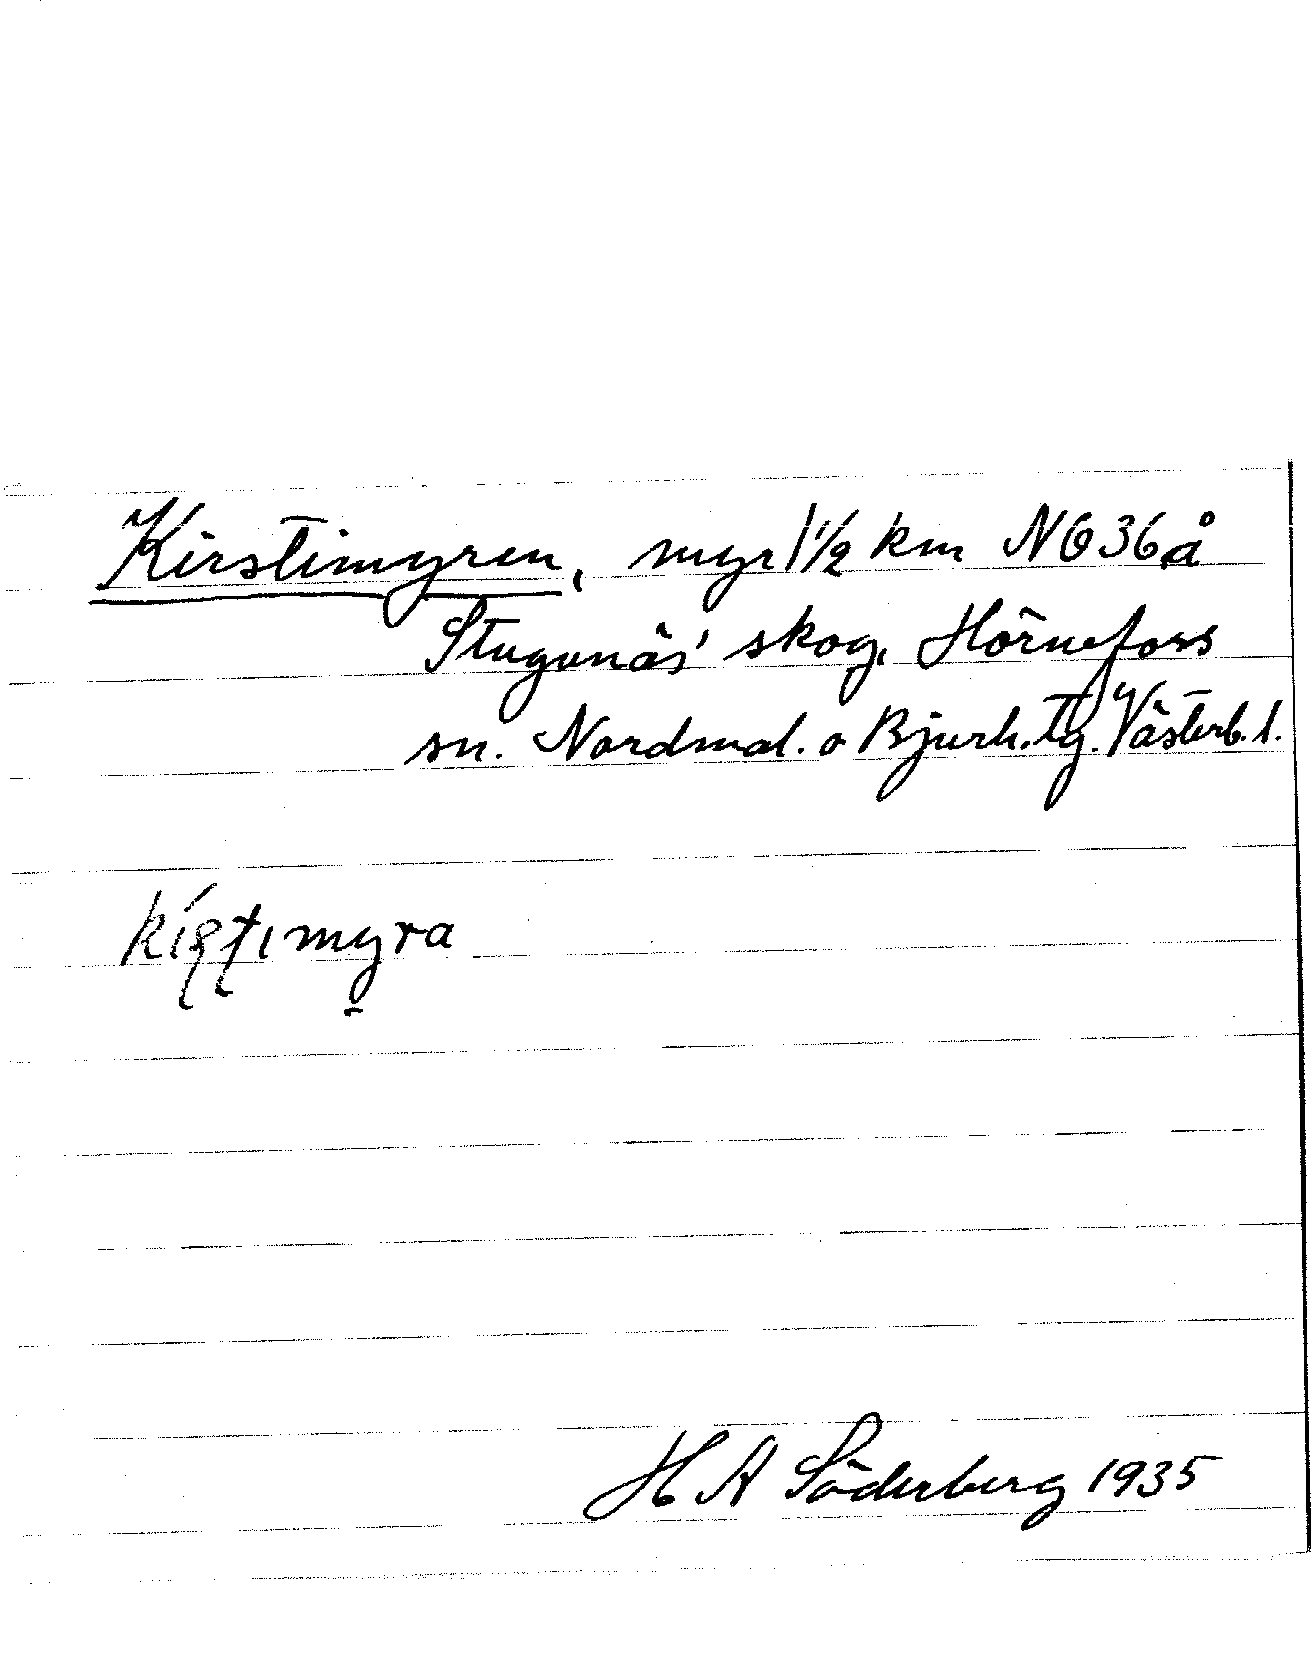 Kirstimyren, myr 1½ km NÖ 36 å
Stugunäs' skog, Hörnefors
sn. Nordmal. o Bjurh. tg. Västerb. l.
kiʂʈımyra
H A Söderberg 1935